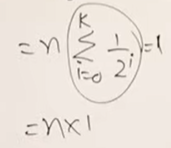 = n ∑_{i=0}^{K} 1/2^i = 1
= n x 1